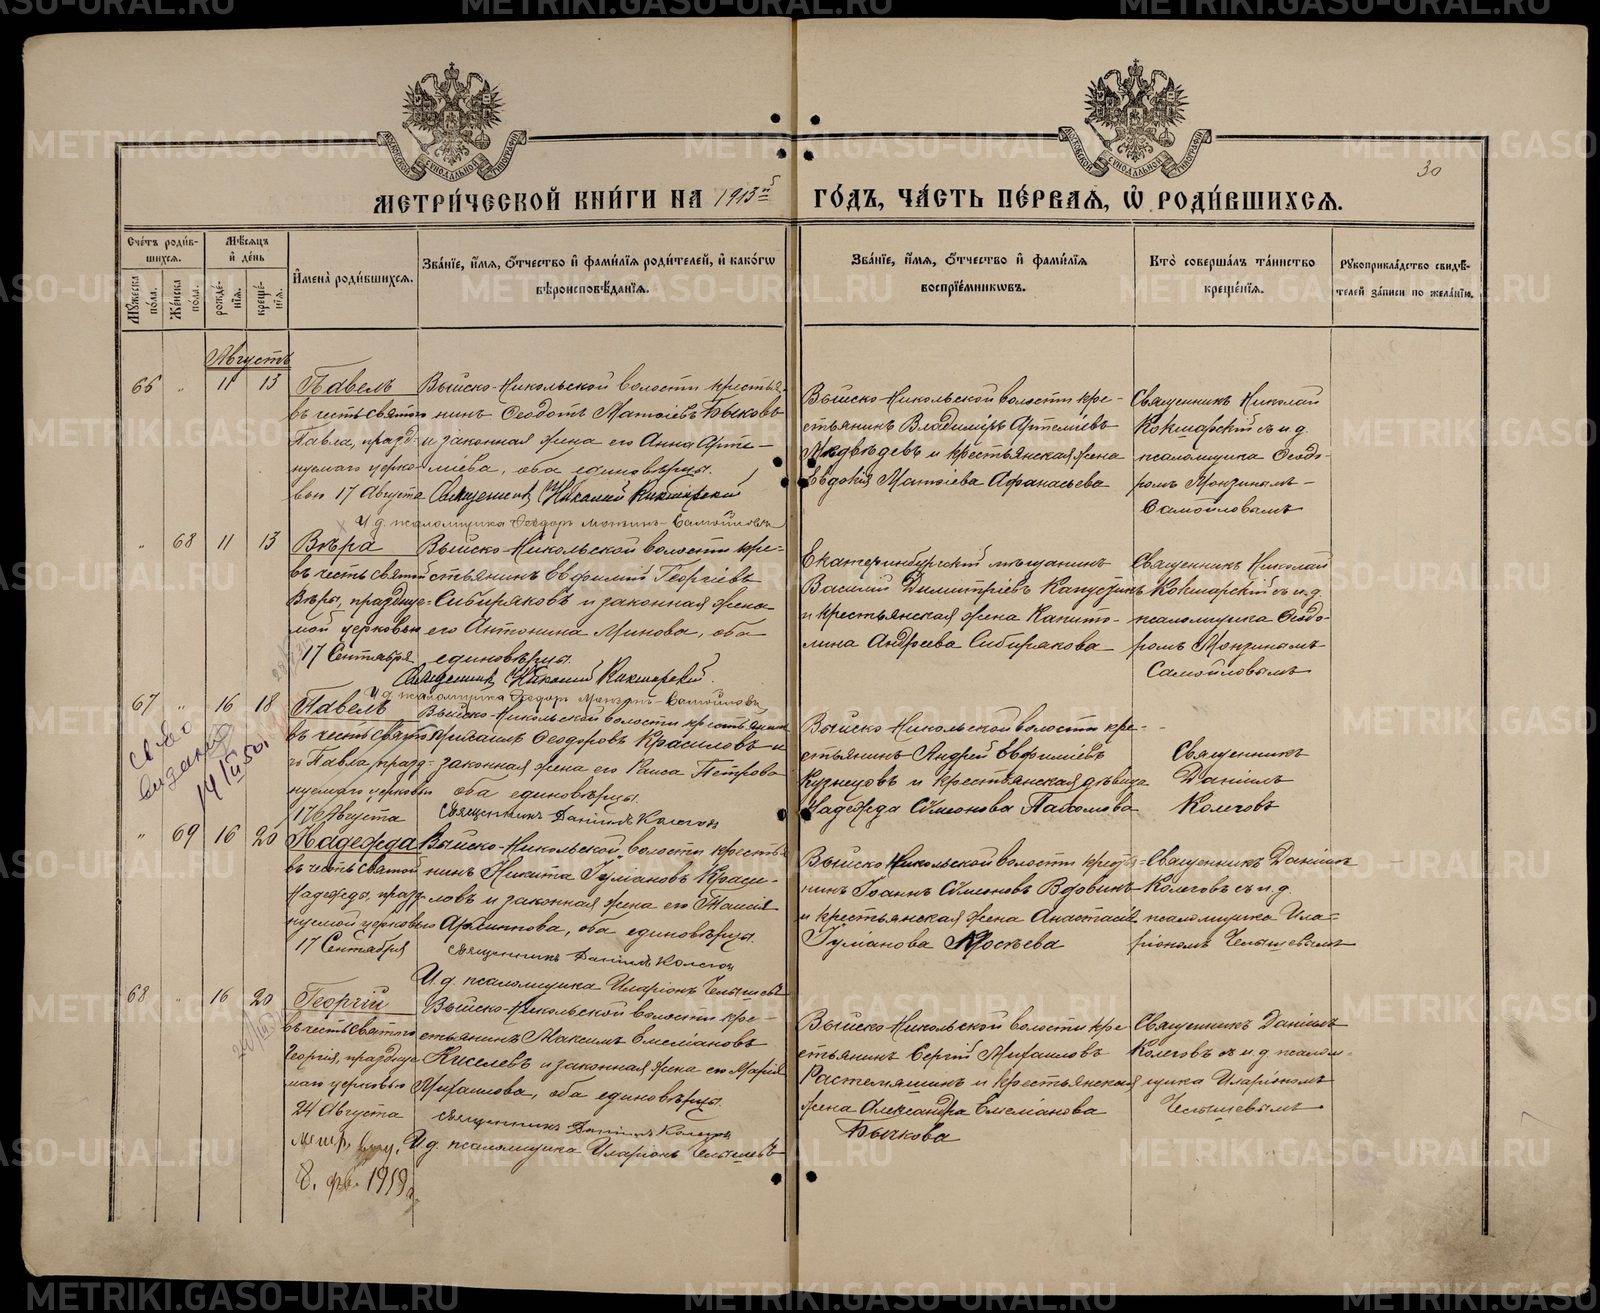 МЕТРИ́ЧЕСКОЙ КНИ́ГИ НА 1913й ГО́ДЪ, ЧА́СТЬ ПЕ́РВАѦ, Ѽ РОДИ́ВШИХСѦ.
30
Сче́тъ роди́в-
шихсѧ.
Мꙋ́жеска по́ла.
Же́нска по́ла.
Мѣ́сѧцъ
и҆ де́нь
рожде́-
нїѧ.
креще́-
нїѧ.
И҆мена̀ роди́вшихсѧ.
Зва́нїе, и҆́мѧ, ѻ҆́тчество и҆ фами́лїѧ роди́телей, и҆ како́гѡ
вѣроисповѣ́данїѧ.
Зва́нїе, и҆́мѧ, ѻ҆́тчество и҆ фами́лїѧ
воспрїе́мникѡвъ.
Кто̀ соверша́лъ та́инство
креще́нїѧ.
Рꙋкоприкла́дство свидѣ́-
телей за́писи по жела́нїю.
Августъ
66 " 11 13
Павелъ
въ честь святого
Павла, празд-
нуемаго церко-
вью 17 Августа
Выйско-Никольской волости крестья-
нинъ Ѳеодотъ Матѳіевъ Быковъ
и законная жена его Анна Арте-
міева, оба единовѣрцы.
Священникъ Николай Кокшарскій
И д. псаломщика Ѳеодоръ Монзинъ-Самойловъ
Выйско-Никольской волости кре-
стьянинъ Владиміръ Артеміевъ
Медвѣдевъ и крестьянская жена
Евдокія Матѳіева Афанасьева
Священникъ Николай
Кокшарскій съ и.д.
псаломщика Ѳеодо-
ромъ Монзинымъ-
Самойловымъ
" 68 11 13
Вѣра
въ честь святой
Вѣры, праздную-
мой церковью
17 Сентября
Выйско-Никольской волости кре-
стьянинъ Евфимій Георгіевъ
Сибиряковъ и законная жена
его Антонина Минова, оба
единовѣрцы.
Священникъ Николай Кокшарскій
И д. псаломщика Ѳеодоръ Монзинъ-Самойловъ
Екатеринбургскій мѣщанинъ
Василій Димитріевъ Капустинъ
и крестьянская жена Капито-
лина Андреева Сибирякова
Священникъ Николай
Кокшарскій съ и.д.
псаломщика Ѳеодо-
ромъ Монзинымъ
Самойловымъ
67 " 16 18
Павелъ
въ честь свято-
го Павла, празд-
нуемаго церковью
17 Августа
Выйско-Никольской волости крестьянинъ
Михаилъ Ѳеодоровъ Красиловъ и
законная жена его Раиса Петрова
оба единовѣрцы.
Священникъ Даніилъ Колеговъ
Выйско-Никольской волости кре-
стьянинъ Андрей Евфиміевъ
Кузнецовъ и крестьянская дѣвица
Надежда Сѵмеонова Пахомова
Священникъ
Даніилъ
Колеговъ
" 69 16 20
Надежда
въ честь святой
Надежды, празд-
нуемой церковью
17 Сентября
Выйско-Никольской волости крестья-
нинъ Никита Іуліановъ Краси-
ловъ и законная жена его Таисія
Архиппова, оба единовѣрцы.
Священникъ Даніилъ Колеговъ
И.д. псаломщика Иларіонъ Челышевъ
Выйско-Никольской волости крестья-
нинъ Іоаннъ Сѵмеоновъ Вдовинъ
и крестьянская жена Анастасія
Іуліанова
Священникъ Даніилъ
Колеговъ съ и.д.
псаломщика Ила-
ріономъ Челышевымъ
68 " 16 20
Георгій
въ честь святого
Георгія, праздную-
маго церковью
24 Августа
Выйско-Никольской волости кре-
стьянинъ Максимъ Емеліановъ
Киселевъ и законная жена его Марія
Михаилова, оба единовѣрцы.
Священникъ Даніилъ Колеговъ
И.д. псаломщика Иларіонъ Челышевъ
Выйско-Никольской волости кре-
стьянинъ Сергій Михаиловъ
и крестьянская
жена Александра Емеліанова
Бычкова
Священникъ Даніилъ
Колеговъ съ и.д. псалом-
щика Иларіономъ
Челышевымъ
METRIKI.GASO-URAL.RU